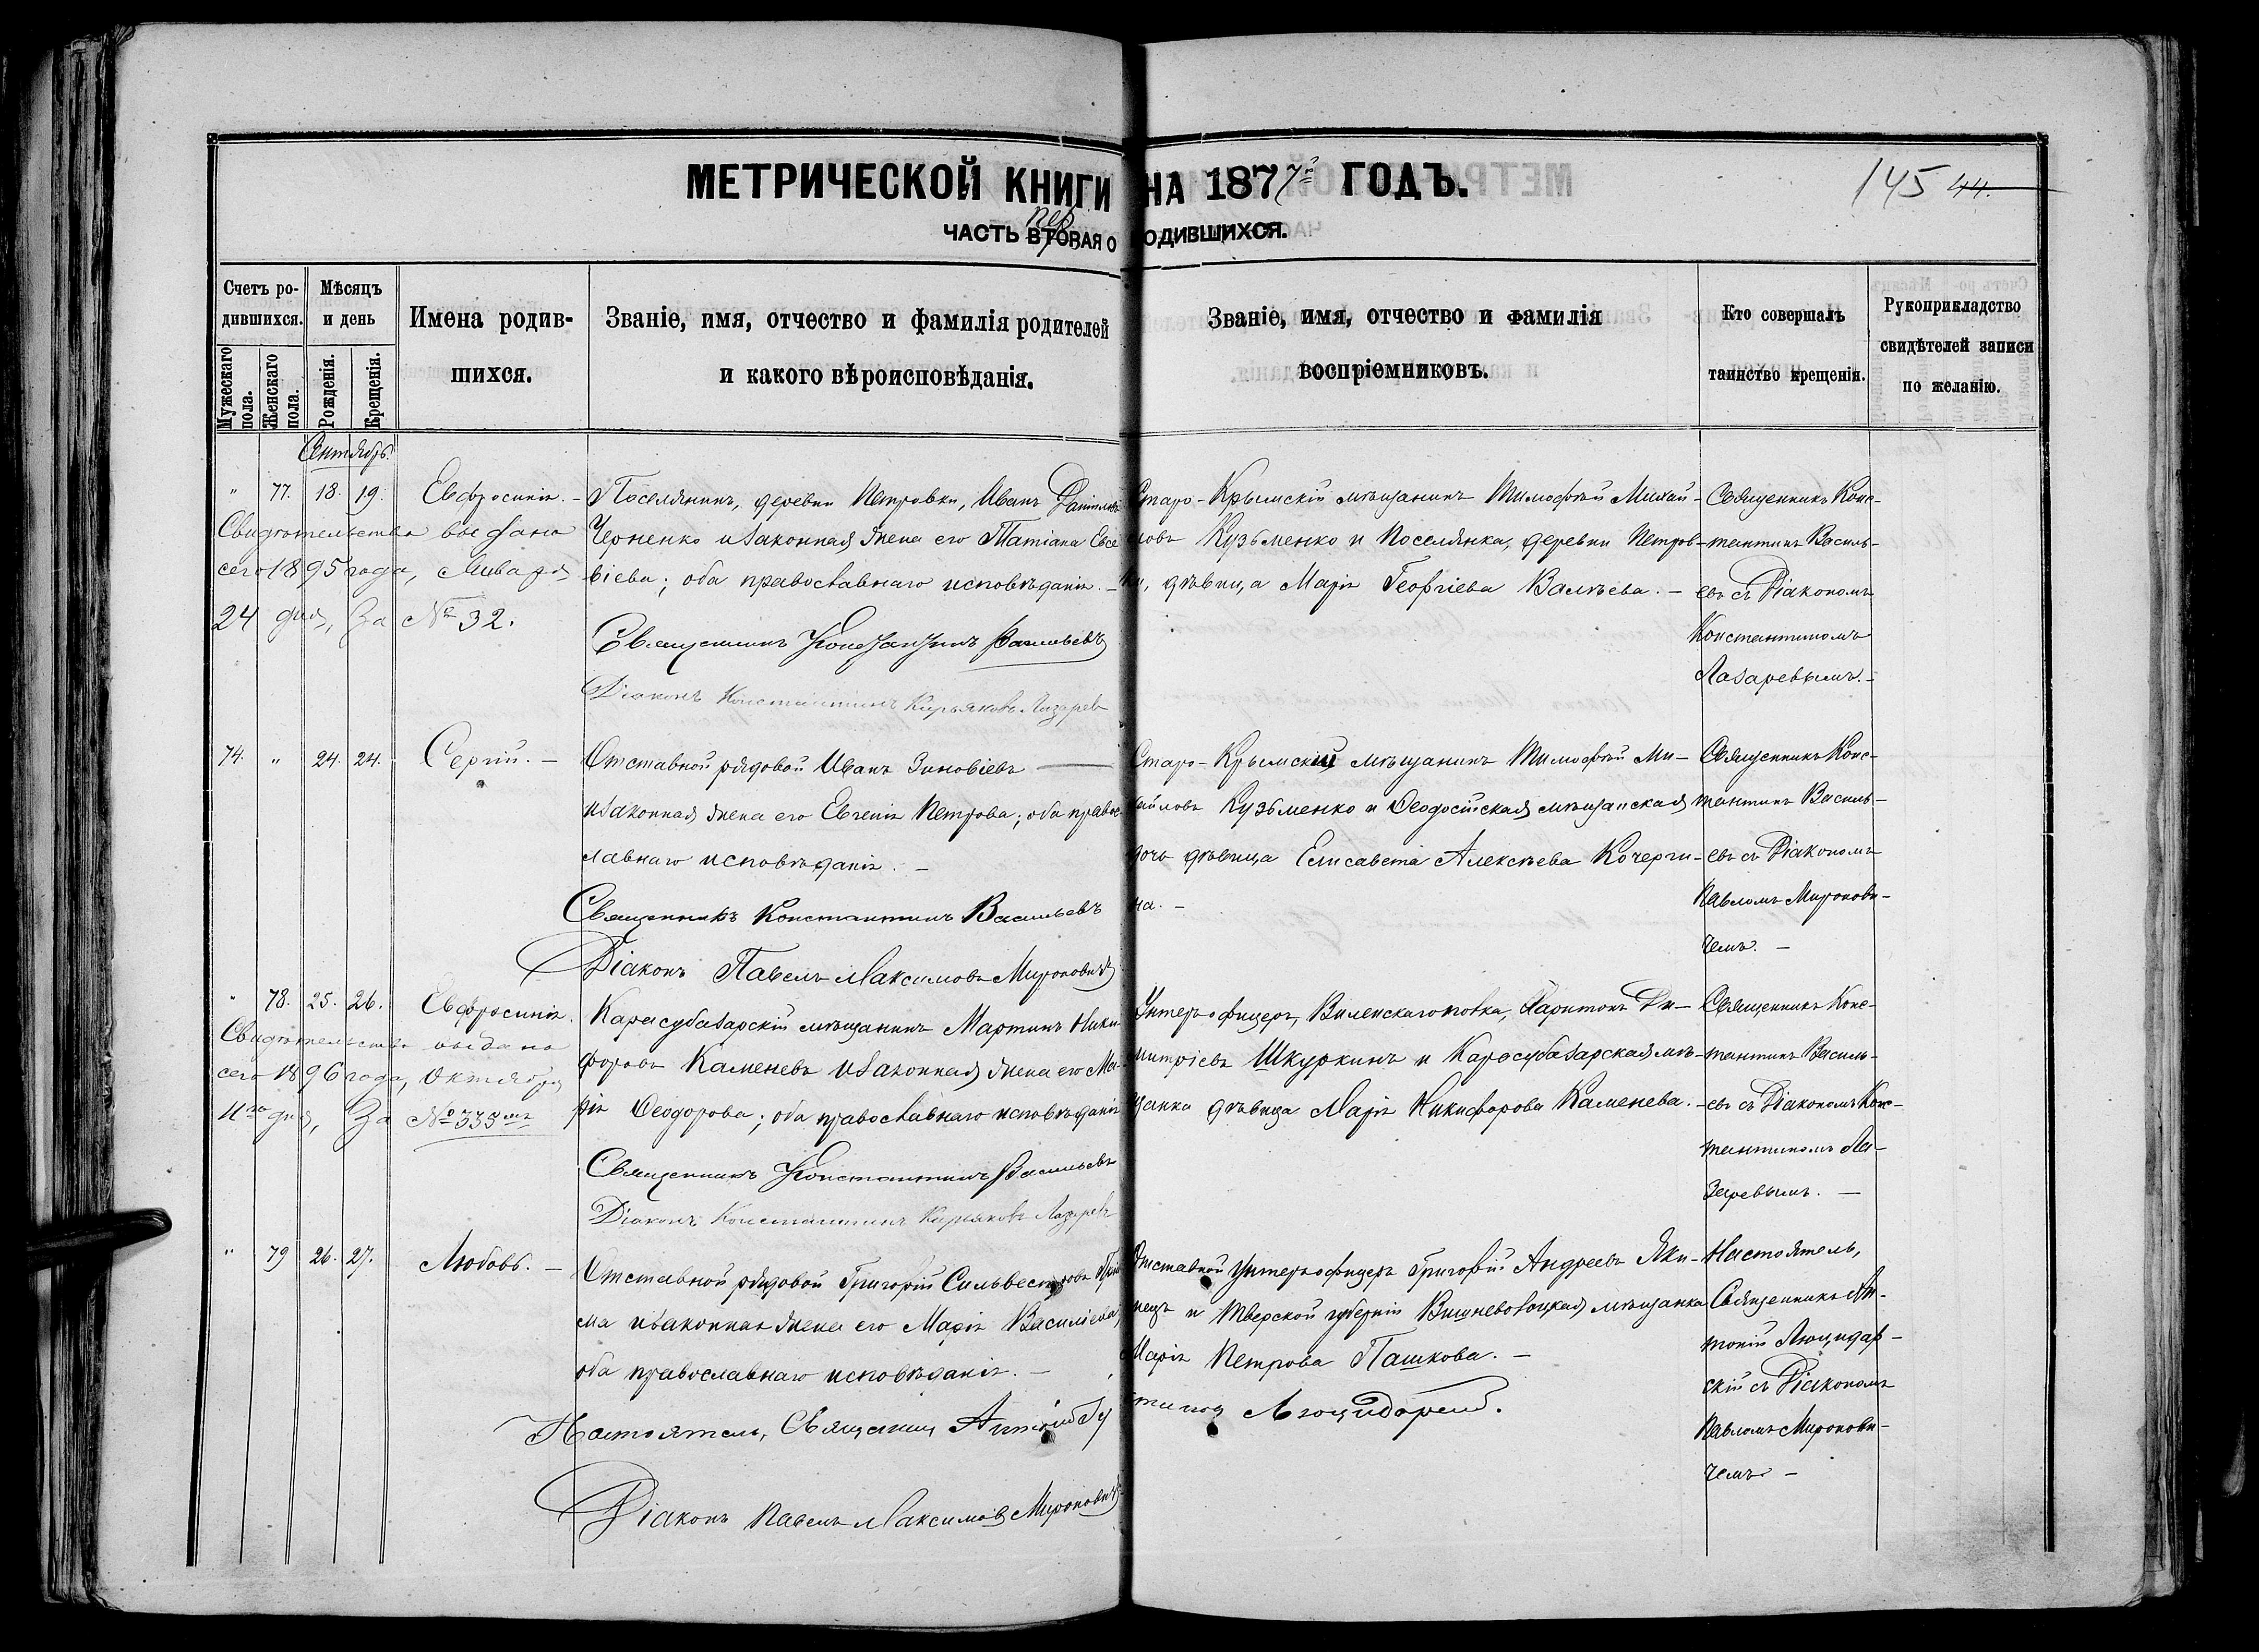 МЕТРИЧЕСКОЙ КНИГИ НА 1877й ГОДЪ.
145 44.
ЧАСТЬ ВТОРАЯ пер О РОДИВШИХСЯ.
Счетъ ро-
дившихся.
Мужескаго пола.
Женскаго пола.
Мѣсяцъ
и день
Рожденія.
Крещенія.
Имена родив-
шихся.
Званіе, имя, отчество и фамилія родителей
и какого вѣроисповѣданія.
Званіе, имя, отчество и фамилія
воспріемниковъ.
Кто совершалъ
таинство крещенія.
Рукоприкладство
свидѣтелей записи
по желанію.
Сентябрь.
" 77. 18. 19. Евфросинія. –
Свидѣтельство выдано
сего 1895 года, Января
24 дня, За № 32.
Поселянинъ, деревни Петровки, Иванъ Даніиловъ
Черненко и законная жена его Татіана Евсе
віева; оба православнаго исповѣданія. –
Священникъ Константинъ Васильевъ
Діаконъ Константинъ Кирьяковъ Лазаревъ
Старо-Крымскій мѣщанинъ Тимофей Михай-
ловъ Кузьменко и Поселянка, деревни Петров-
ки, дѣвица Марія Георгіева Валѣева. –
Священникъ Конс-
тантинъ Василь-
евъ съ Діакономъ
Константиномъ
Лазаревымъ. –
74. " 24. 24. Сергій. –
Отставной рядовой Иванъ Зиновіевъ
и законная жена его Евгенія Петрова; оба правос
лавнаго исповѣданія. –
Священникъ Константинъ Васильевъ
Діаконъ Павелъ Максимовъ Мироновичъ
Старо-Крымскій мѣщанинъ Тимофей Ми-
хайловъ Кузьменко и Ѳеодосійская мѣщанская
дочь дѣвица Елисавета Алексѣева Кочерги-
на. –
Священникъ Конс-
тантинъ Василь-
евъ съ Діакономъ
Павломъ Миронови-
чемъ. –
" 78. 25. 26. Евфросинія.
Свидѣтельство выдано
сего 1896 года, Октября
11го дня, За № 333мъ
Карасубазарскій мѣщанинъ Мартинъ Ники
форовъ Каменевъ и законная жена его Ма-
рія Ѳеодорова; оба православнаго исповѣданія
Священникъ Константинъ Васильевъ
Діаконъ Константинъ Кирьяковъ Лазаревъ
Унтеръ-офицеръ, Виленскаго полка, Харитонъ Ди-
митріевъ Шкуркинъ и Карасубазарская мѣ-
щанка дѣвица Марія Никифорова Каменева. –
Священникъ Конс-
тантинъ Василь-
евъ съ Діакономъ Конс-
тантиномъ Ла-
заревымъ. –
" 79 26. 27. Любовь. –
Отставной рядовой Григорій Сильвестровъ
и законная жена его Марія Василіева;
оба православнаго исповѣданія. –
Настоятель, Священникъ Антоній
Люцидарскій.
Діаконъ Павелъ Максимовъ Мироновичъ
Отставной Унтеръ-офицеръ Григорій Андреевъ Яки-
мецъ и Тверской губерніи Вишневолоцкая мѣщанка
Марія Петрова Пашкова. –
Настоятель,
Священникъ Ан-
тоній Люцидар-
скій съ Діакономъ
Павломъ Миронови-
чемъ –